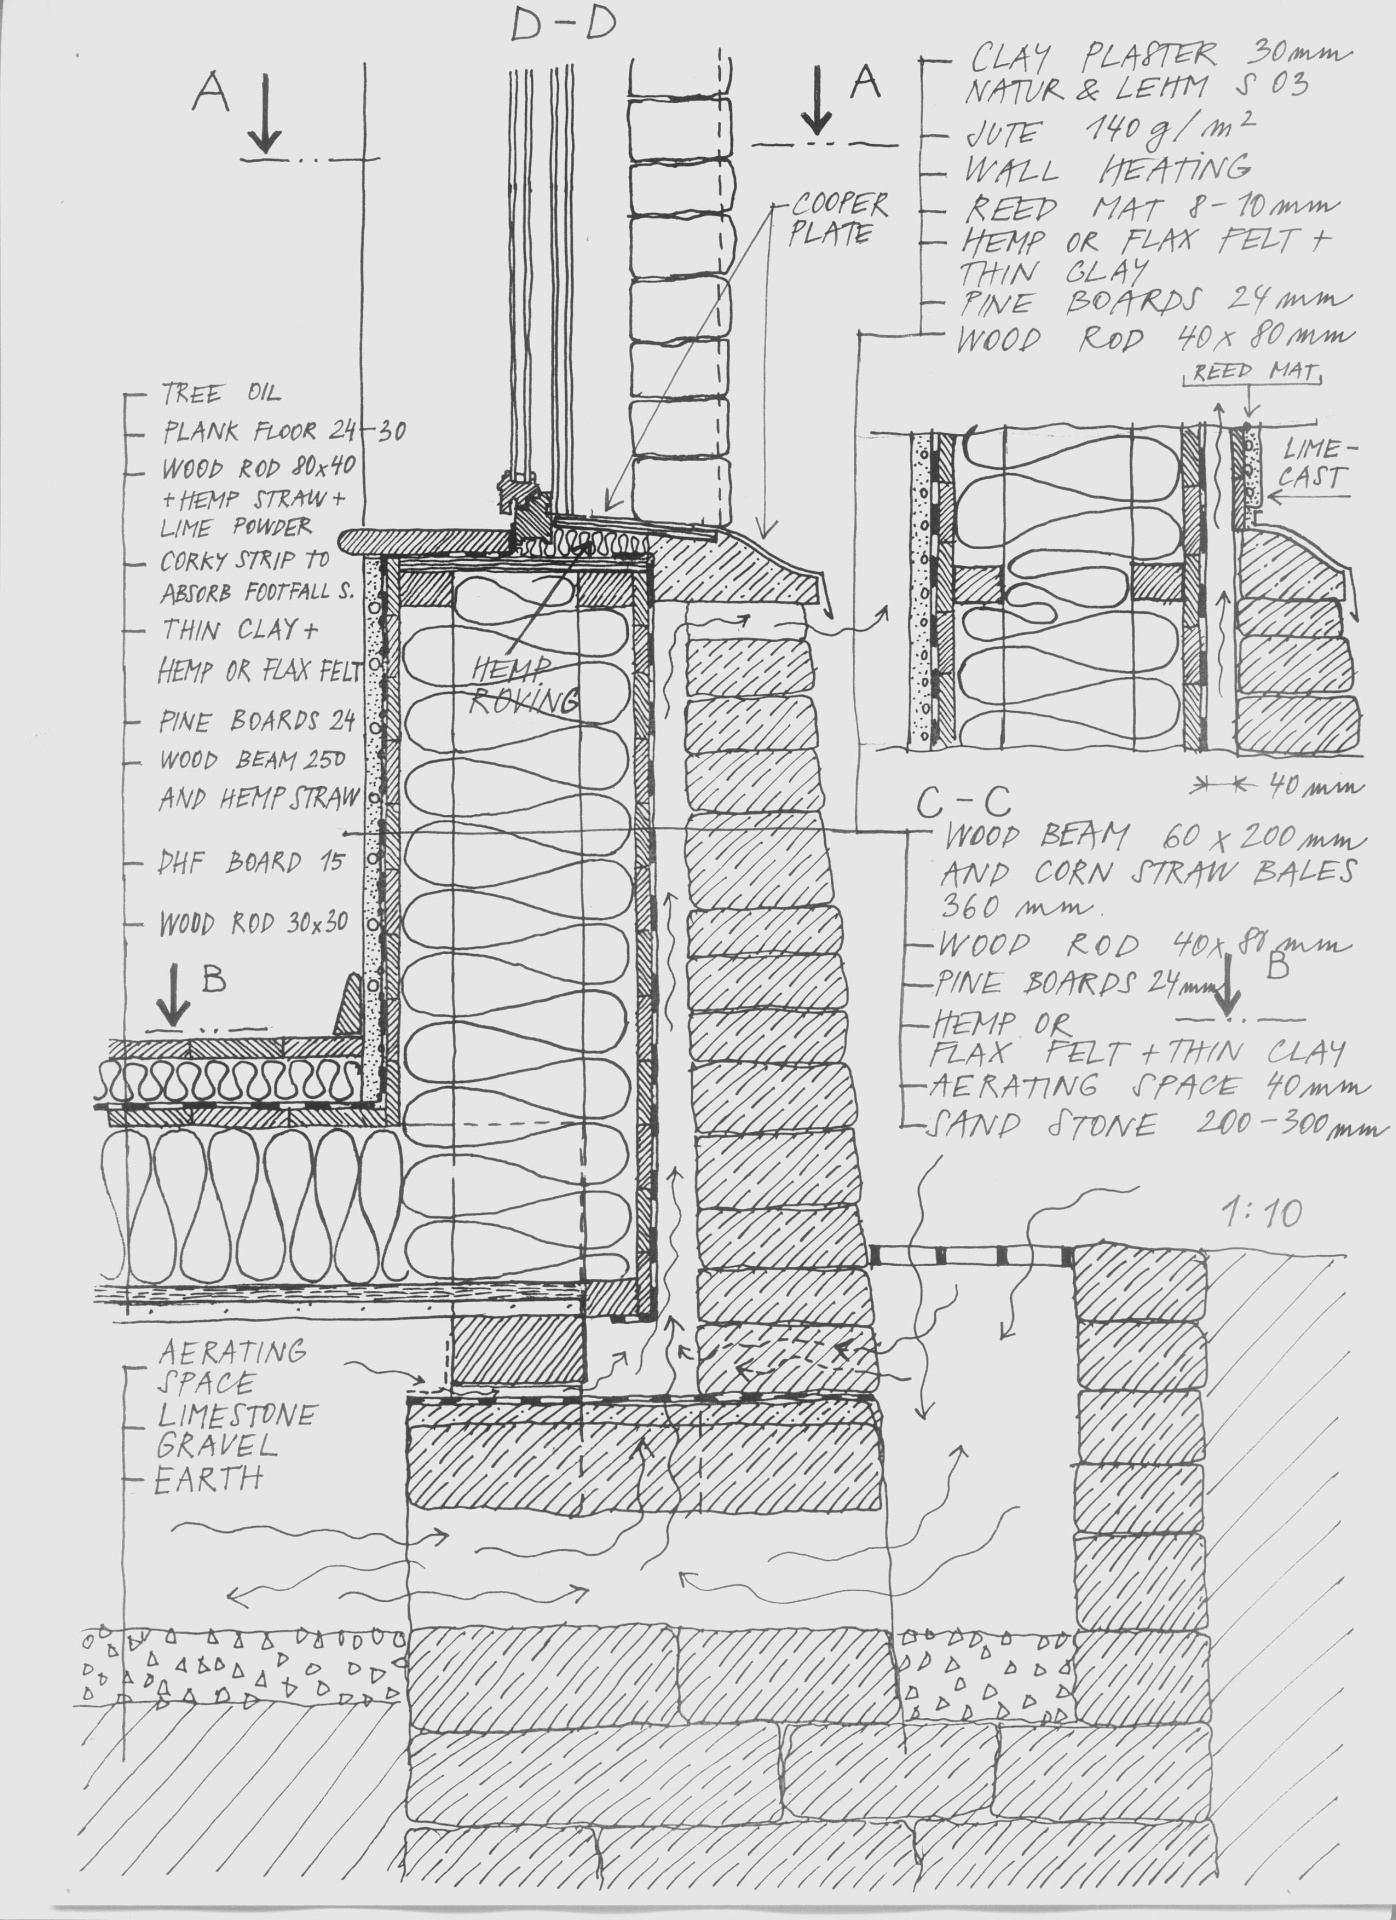 D-D
A
A
CLAY PLASTER 30mm
NATUR & LEHM S 03
JUTE 140 g/m²
WALL HEATING
REED MAT 8-10mm
HEMP OR FLAX FELT +
THIN CLAY
PINE BOARDS 24mm
WOOD ROD 40x80mm
COOPER
PLATE
REED MAT
LIME-
CAST
TREE OIL
PLANK FLOOR 24-30
WOOD ROD 80x40
+HEMP STRAW+
LIME POWDER
CORKY STRIP TO
ABSORB FOOTFALL S.
THIN CLAY+
HEMP OR FLAX FELT
PINE BOARDS 24
WOOD BEAM 250
AND HEMP STRAW
DHF BOARD 15
WOOD ROD 30x30
HEMP
ROVING
B
40mm
C-C
WOOD BEAM 60 x 200mm
AND CORN STRAW BALES
360 mm.
WOOD ROD 40x80mm
B
PINE BOARDS 24mm
HEMP OR
FLAX FELT + THIN CLAY
AERATING SPACE 40mm
SAND STONE 200-300mm
1:10
AERATING
SPACE
LIMESTONE
GRAVEL
EARTH